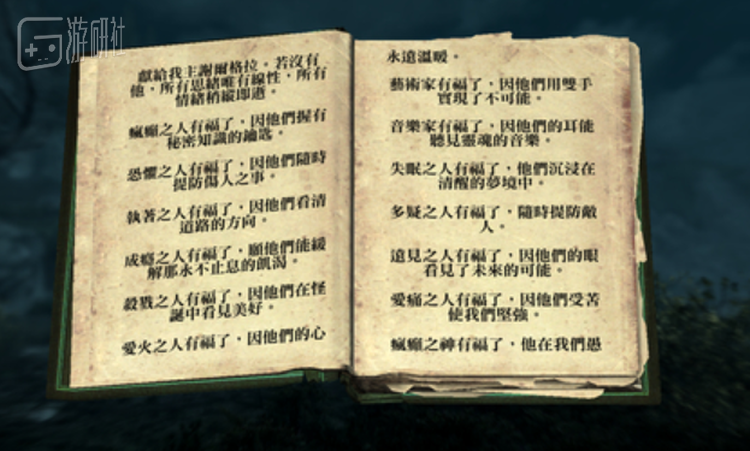 游研社
獻給我主謝爾格拉。若沒有
他，所有思緒唯有線性，所有
情緒稍縱即逝。
瘋癲之人有福了，因他們握有
秘密知識的鑰匙。
恐懼之人有福了，因他們隨時
提防傷人之事。
執著之人有福了，因他們看清
道路的方向。
成癮之人有福了，願他們能緩
解那永不止息的飢渴。
殺戮之人有福了，因他們在怪
誕中看見美好。
愛火之人有福了，因他們的心
永遠溫暖。
藝術家有福了，因他們用雙手
實現了不可能。
音樂家有福了，因他們的耳能
聽見靈魂的音樂。
失眠之人有福了，他們沉浸在
清醒的夢境中。
多疑之人有福了，隨時提防敵
人。
遠見之人有福了，因他們的眼
看見了未來的可能。
愛痛之人有福了，因他們受苦
使我們堅強。
瘋癲之神有福了，他在我們愚